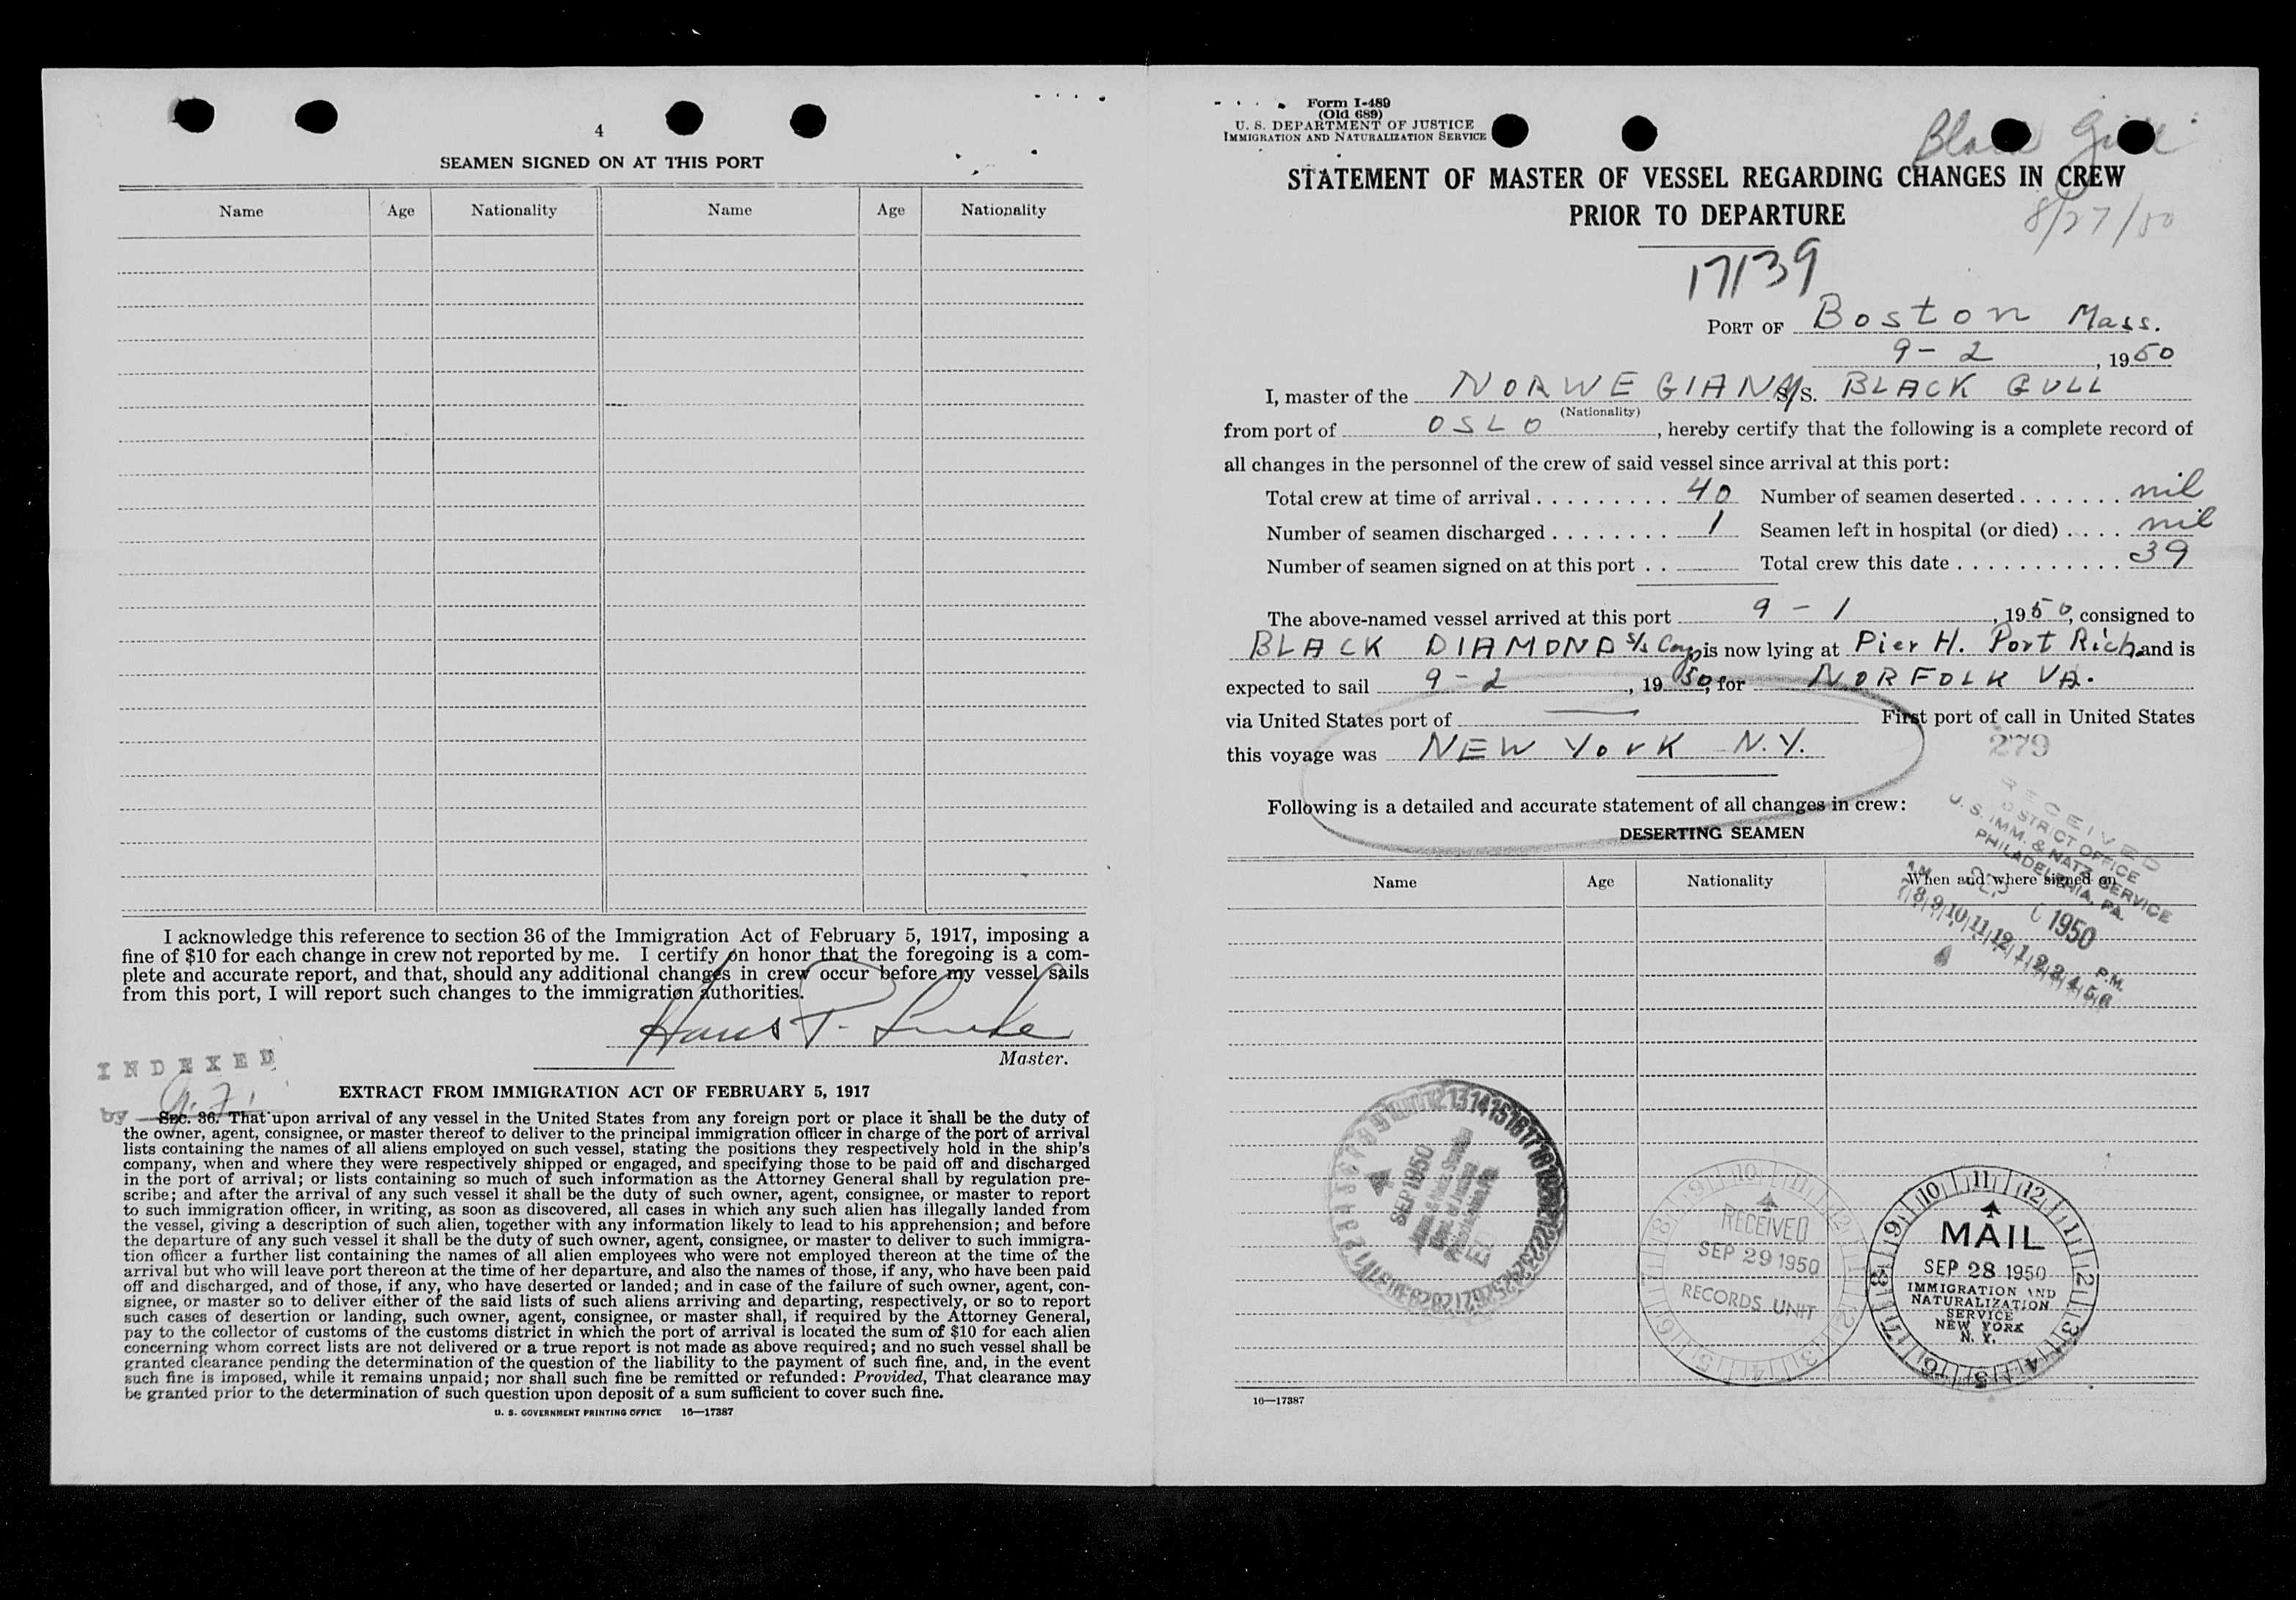 4
SEAMEN SIGNED ON AT THIS PORT
Name Age Nationality Name Age Nationality
I acknowledge this reference to section 36 of the Immigration Act of February 5, 1917, imposing a
fine of $10 for each change in crew not reported by me. I certify on honor that the foregoing is a com-
plete and accurate report, and that, should any additional changes in crew occur before my vessel sails
from this port, I will report such changes to the immigration authorities.
Hans P.
Master.
INDEXED
by
EXTRACT FROM IMMIGRATION ACT OF FEBRUARY 5, 1917
SEC. 36. That upon arrival of any vessel in the United States from any foreign port or place it shall be the duty of
the owner, agent, consignee, or master thereof to deliver to the principal immigration officer in charge of the port of arrival
lists containing the names of all aliens employed on such vessel, stating the positions they respectively hold in the ship's
company, when and where they were respectively shipped or engaged, and specifying those to be paid off and discharged
in the port of arrival; or lists containing so much of such information as the Attorney General shall by regulation pre-
scribe; and after the arrival of any such vessel it shall be the duty of such owner, agent, consignee, or master to report
to such immigration officer, in writing, as soon as discovered, all cases in which any such alien has illegally landed from
the vessel, giving a description of such alien, together with any information likely to lead to his apprehension; and before
the departure of any such vessel it shall be the duty of such owner, agent, consignee, or master to deliver to such immigra-
tion officer a further list containing the names of all alien employees who were not employed thereon at the time of the
arrival but who will leave port thereon at the time of her departure, and also the names of those, if any, who have been paid
off and discharged, and of those, if any, who have deserted or landed; and in case of the failure of such owner, agent, con-
signee, or master so to deliver either of the said lists of such aliens arriving and departing, respectively, or so to report
such cases of desertion or landing, such owner, agent, consignee, or master shall, if required by the Attorney General,
pay to the collector of customs of the customs district in which the port of arrival is located the sum of $10 for each alien
concerning whom correct lists are not delivered or a true report is not made as above required; and no such vessel shall be
granted clearance pending the determination of the question of the liability to the payment of such fine, and, in the event
such fine is imposed, while it remains unpaid; nor shall such fine be remitted or refunded: Provided, That clearance may
be granted prior to the determination of such question upon deposit of a sum sufficient to cover such fine.
U. S. GOVERNMENT PRINTING OFFICE 16—17387
Form I-489
(Old 689)
U. S. DEPARTMENT OF JUSTICE
IMMIGRATION AND NATURALIZATION SERVICE
STATEMENT OF MASTER OF VESSEL REGARDING CHANGES IN CREW
PRIOR TO DEPARTURE
8/27/50
17139
PORT OF Boston Mass.
9 - 2, 1950
I, master of the NORWEGIAN S/S. BLACK GULL
(Nationality)
from port of OSLO, hereby certify that the following is a complete record of
all changes in the personnel of the crew of said vessel since arrival at this port:
Total crew at time of arrival . . . . . . . . . 40 Number of seamen deserted . . . . . . . nil
Number of seamen discharged . . . . . . . . 1 Seamen left in hospital (or died) . . . . nil
Number of seamen signed on at this port . . Total crew this date . . . . . . . . . . . . 39
The above-named vessel arrived at this port 9 - 1, 1950, consigned to
BLACK DIAMOND S/S Corp is now lying at Pier H. Port Rich. and is
expected to sail 9 - 2, 1950, for NORFOLK VA.
via United States port of — First port of call in United States
this voyage was NEW YORK N.Y.
279
Following is a detailed and accurate statement of all changes in crew:
DESERTING SEAMEN
Name Age Nationality When and where signed on
RECEIVED
DISTRICT OFFICE
U. S. IMM. & NATZ. SERVICE
PHILADELPHIA, PA.
A.M. 1950
7 8 9 10 11 12 1 2 3 4 5 6 P.M.
SEP 1950
RECEIVED
SEP 29 1950
RECORDS UNIT
MAIL
SEP 28 1950
IMMIGRATION AND
NATURALIZATION
SERVICE
NEW YORK
N. Y.
16—17387